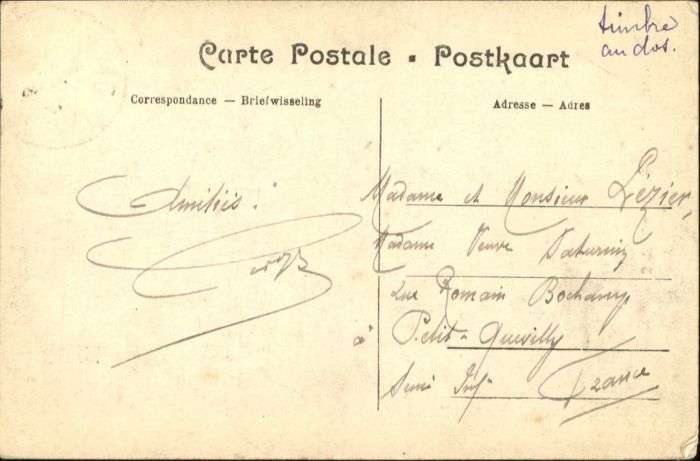 timbre
au dos.
Carte Postale • Postkaart
Correspondance — Briefwisseling
Adresse — Adres
Amitiés :
Madame et Monsieur Lézier
Madame Veuve Saturnin
Rue Romain Bochamp
à Petit-Quevilly
Seine Inf. France